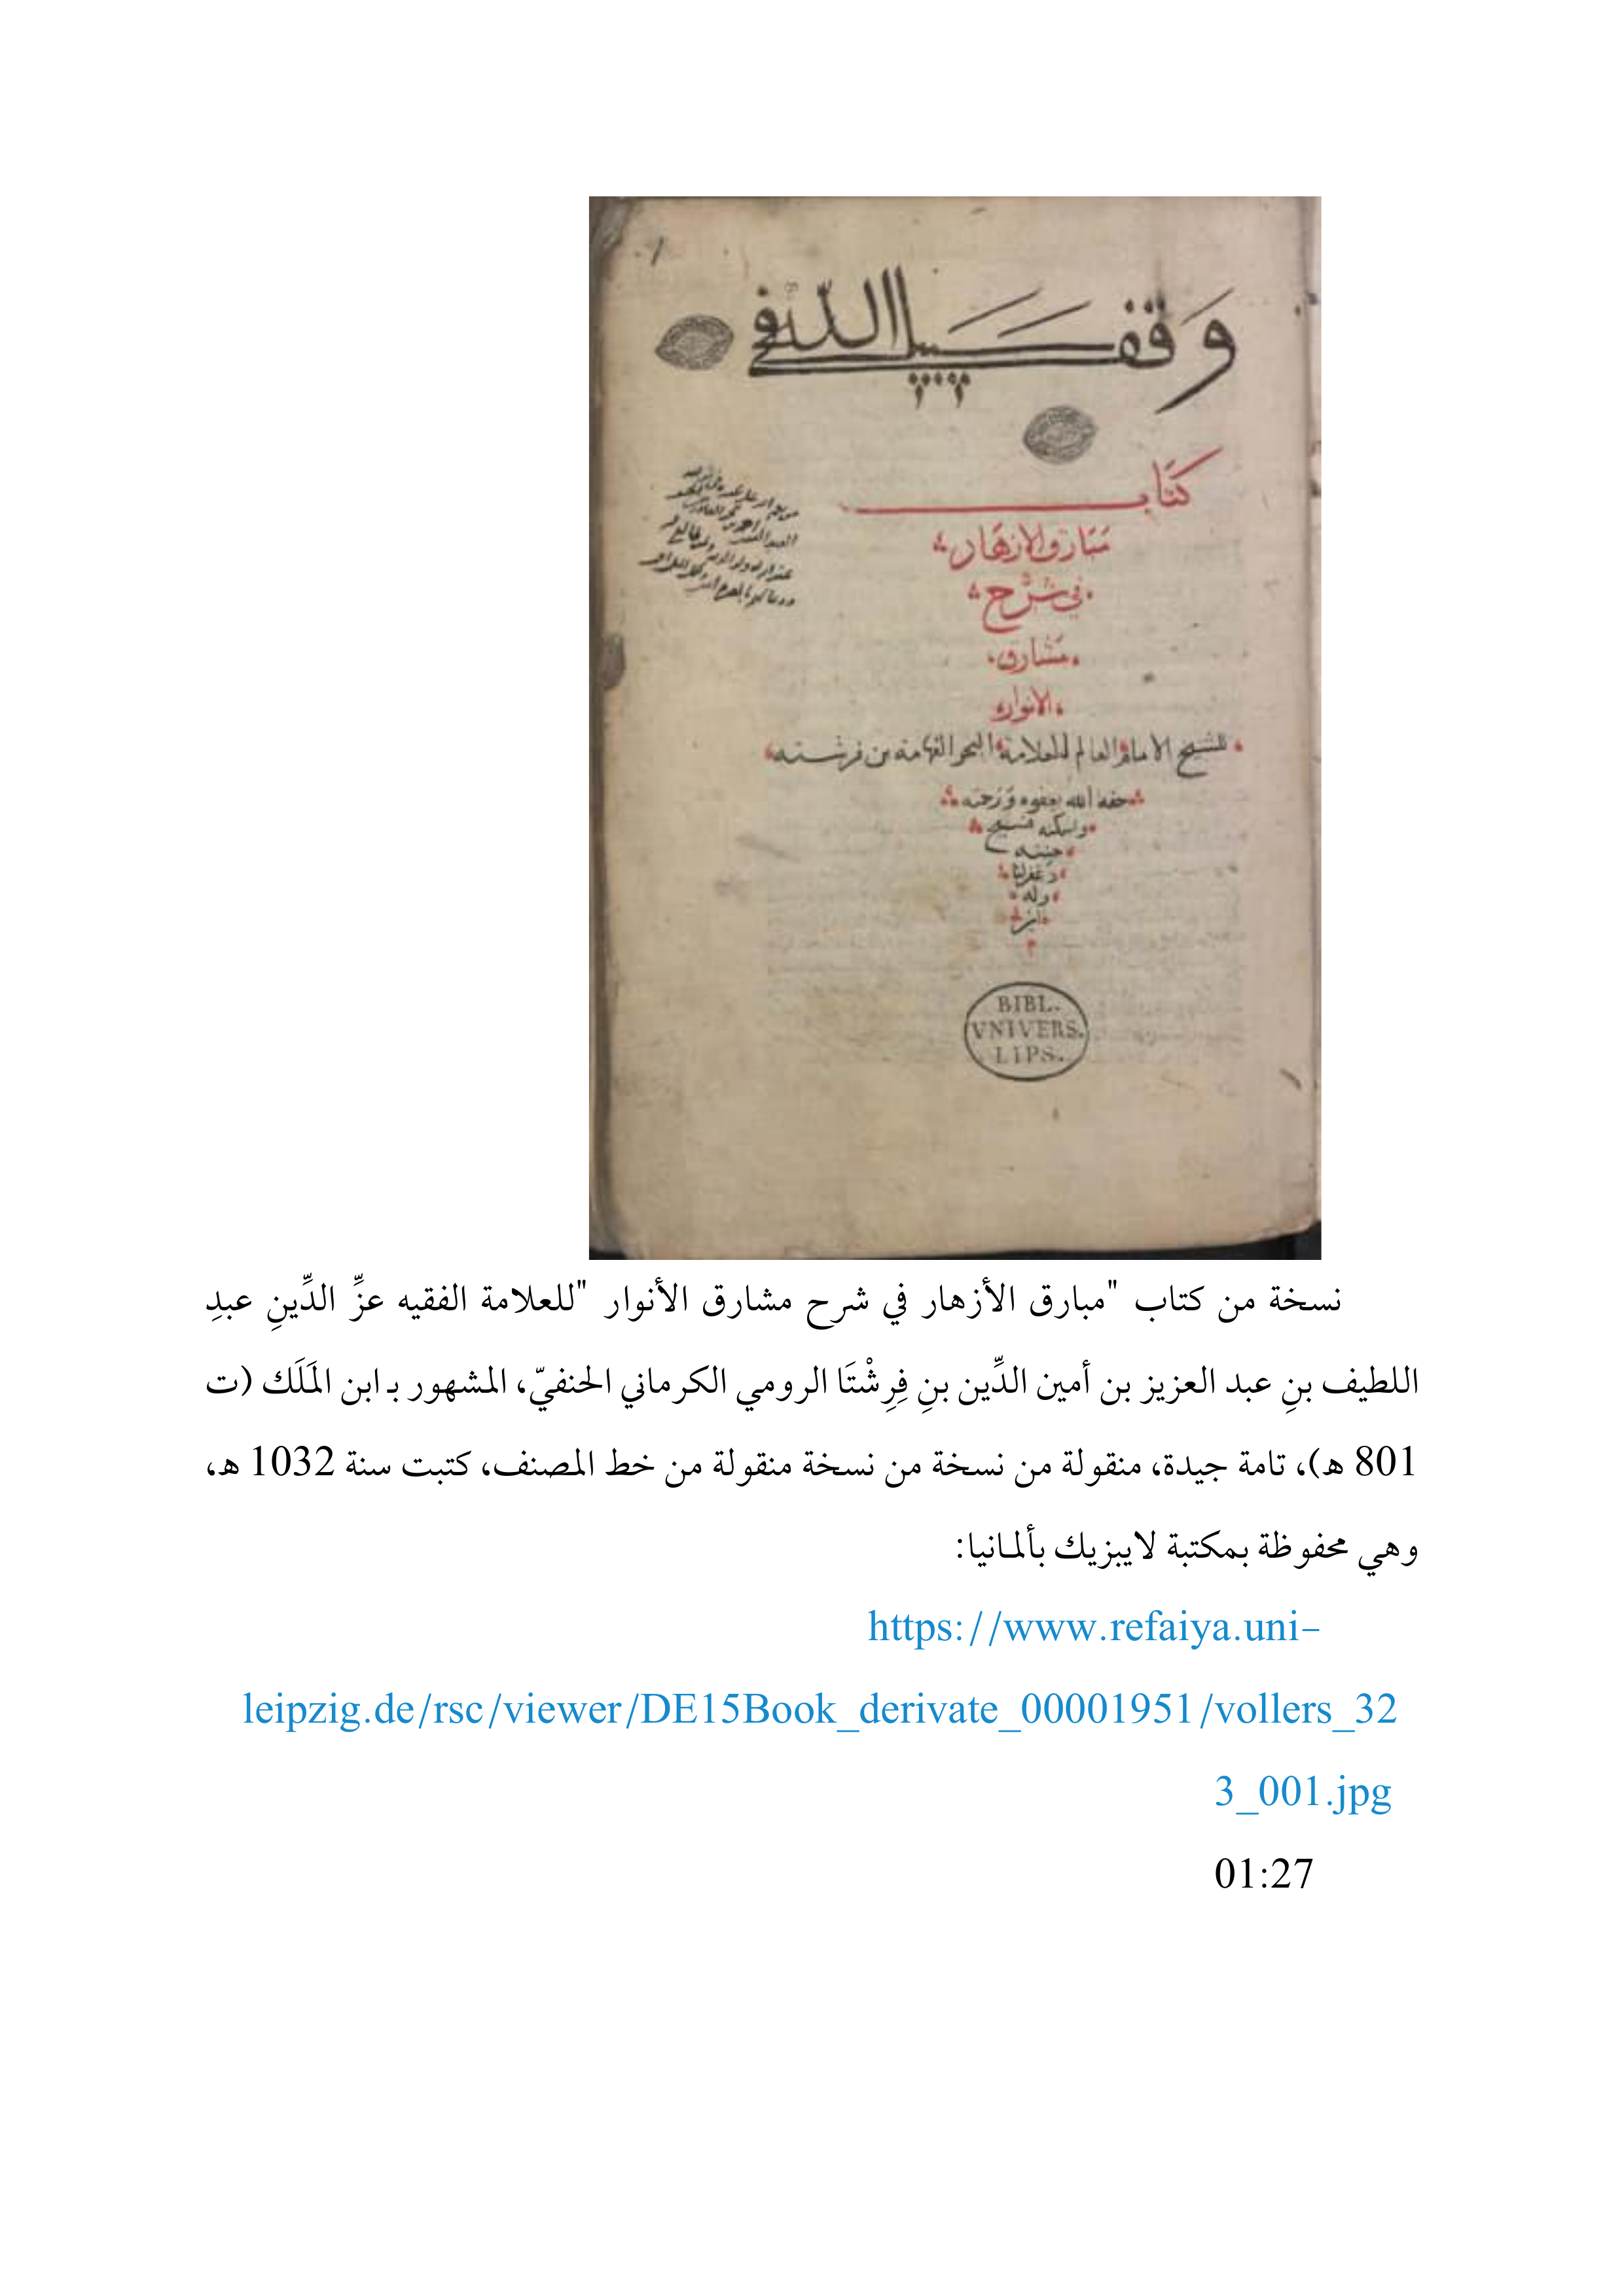 وقف في سبيل الله
كتاب
مبارق الازهار
في شرح
مشارق
الانوار
للشيخ الامام العالم العلامة البحر الفهامة بن فرشته
الله بعفوه ورحمته
واسكنه فسيح
جنته
وغفر لنا
وله
BIBL.
VNIVERS.
LIPS.
نسخة من كتاب "مبارق الأزهار في شرح مشارق الأنوار "للعلامة الفقيه عزِّ الدِّينِ عبدِ
اللطيف بنِ عبد العزيز بن أمين الدِّين بنِ فِرِشْتَا الرومي الكرماني الحنفيّ، المشهور بـ ابن المَلَك (ت
801 هـ)، تامة جيدة، منقولة من نسخة من نسخة منقولة من خط المصنف، كتبت سنة 1032 هـ،
وهي محفوظة بمكتبة لايبزيك بألمانيا:
https://www.refaiya.uni-
leipzig.de/rsc/viewer/DE15Book_derivate_00001951/vollers_32
3_001.jpg
01:27